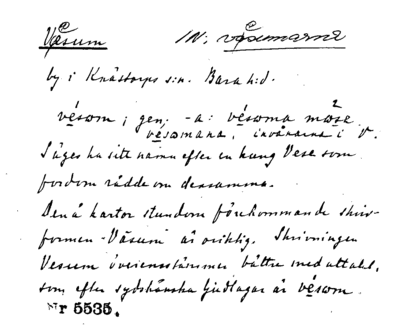 Väsum IN: väsumarna
by i Knästorps s:n. Bara h:d.
vésom; gen: -a: vésoma mose
vesomana, invånarna i V.
Säges ha sitt namn efter en kung Vese som
fordom rådde om densamma.
Den å kartor stundom förekommande skriv-
formen -Väsum är oriktig. Skrivningen
Vesum överensstämmer bättre med uttalet,
som efter sydskånska ljudlagar är vésom.
Nr 5535.